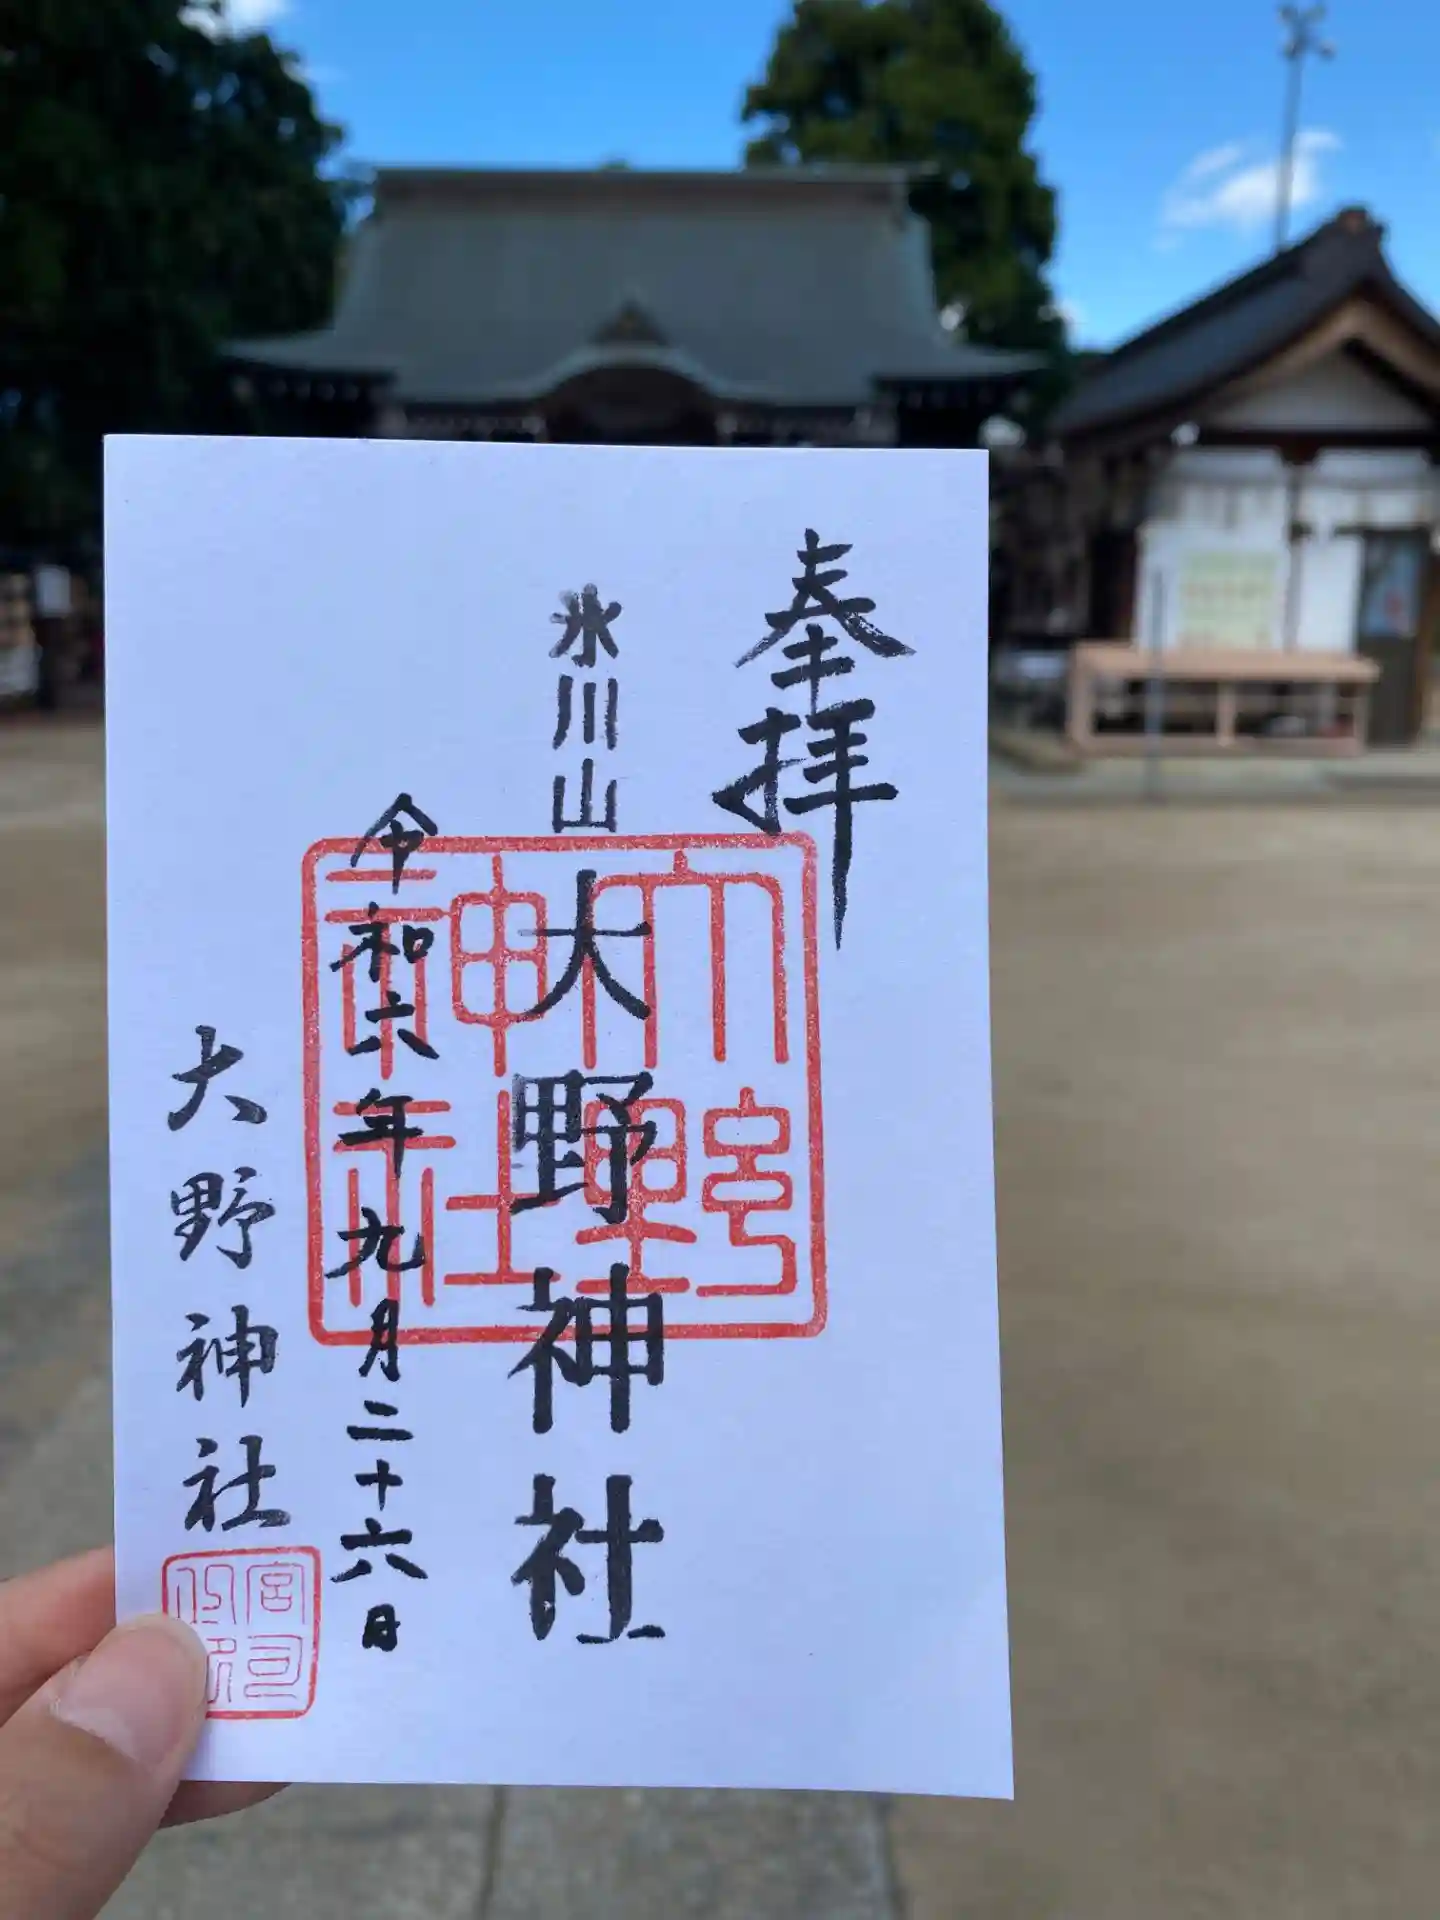 奉拝
氷川山
大野神社
令和六年九月二十六日
大野神社
大宮野神社
宮司